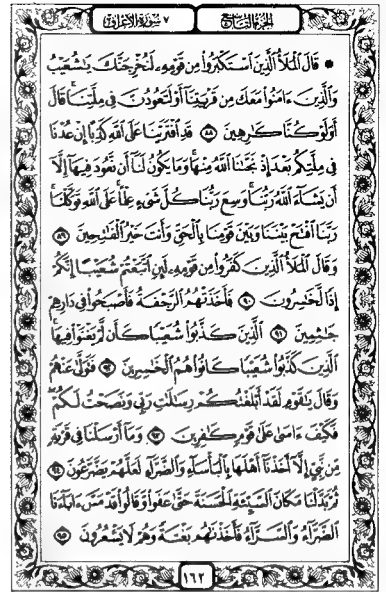 الجزء التاسع
٧ سورة الأعراف
* قَالَ ٱلْمَلَأُ ٱلَّذِينَ ٱسْتَكْبَرُوا۟ مِن قَوْمِهِۦ لَنُخْرِجَنَّكَ يَٰشُعَيْبُ
وَٱلَّذِينَ ءَامَنُوا۟ مَعَكَ مِن قَرْيَتِنَآ أَوْ لَتَعُودُنَّ فِى مِلَّتِنَا ۚ قَالَ
أَوَلَوْ كُنَّا كَٰرِهِينَ ٨٨ قَدِ ٱفْتَرَيْنَا عَلَى ٱللَّهِ كَذِبًا إِنْ عُدْنَا
فِى مِلَّتِكُم بَعْدَ إِذْ نَجَّىٰنَا ٱللَّهُ مِنْهَا ۚ وَمَا يَكُونُ لَنَآ أَن نَّعُودَ فِيهَآ إِلَّآ
أَن يَشَآءَ ٱللَّهُ رَبُّنَا ۚ وَسِعَ رَبُّنَا كُلَّ شَىْءٍ عِلْمًا ۚ عَلَى ٱللَّهِ تَوَكَّلْنَا ۚ
رَبَّنَا ٱفْتَحْ بَيْنَنَا وَبَيْنَ قَوْمِنَا بِٱلْحَقِّ وَأَنتَ خَيْرُ ٱلْفَٰتِحِينَ ٨٩
وَقَالَ ٱلْمَلَأُ ٱلَّذِينَ كَفَرُوا۟ مِن قَوْمِهِۦ لَئِنِ ٱتَّبَعْتُمْ شُعَيْبًا إِنَّكُمْ
إِذًا لَّخَٰسِرُونَ ٩٠ فَأَخَذَتْهُمُ ٱلرَّجْفَةُ فَأَصْبَحُوا۟ فِى دَارِهِمْ
جَٰثِمِينَ ٩١ ٱلَّذِينَ كَذَّبُوا۟ شُعَيْبًا كَأَن لَّمْ يَغْنَوْا۟ فِيهَا ۚ
ٱلَّذِينَ كَذَّبُوا۟ شُعَيْبًا كَانُوا۟ هُمُ ٱلْخَٰسِرِينَ ٩٢ فَتَوَلَّىٰ عَنْهُمْ
وَقَالَ يَٰقَوْمِ لَقَدْ أَبْلَغْتُكُمْ رِسَٰلَٰتِ رَبِّى وَنَصَحْتُ لَكُمْ ۖ
فَكَيْفَ ءَاسَىٰ عَلَىٰ قَوْمٍ كَٰفِرِينَ ٩٣ وَمَآ أَرْسَلْنَا فِى قَرْيَةٍ
مِّن نَّبِىٍّ إِلَّآ أَخَذْنَآ أَهْلَهَا بِٱلْبَأْسَآءِ وَٱلضَّرَّآءِ لَعَلَّهُمْ يَضَّرَّعُونَ ٩٤
ثُمَّ بَدَّلْنَا مَكَانَ ٱلسَّيِّئَةِ ٱلْحَسَنَةَ حَتَّىٰ عَفَوا۟ وَّقَالُوا۟ قَدْ مَسَّ ءَابَآءَنَا
ٱلضَّرَّآءُ وَٱلسَّرَّآءُ فَأَخَذْنَٰهُم بَغْتَةً وَهُمْ لَا يَشْعُرُونَ ٩٥
١٦٢